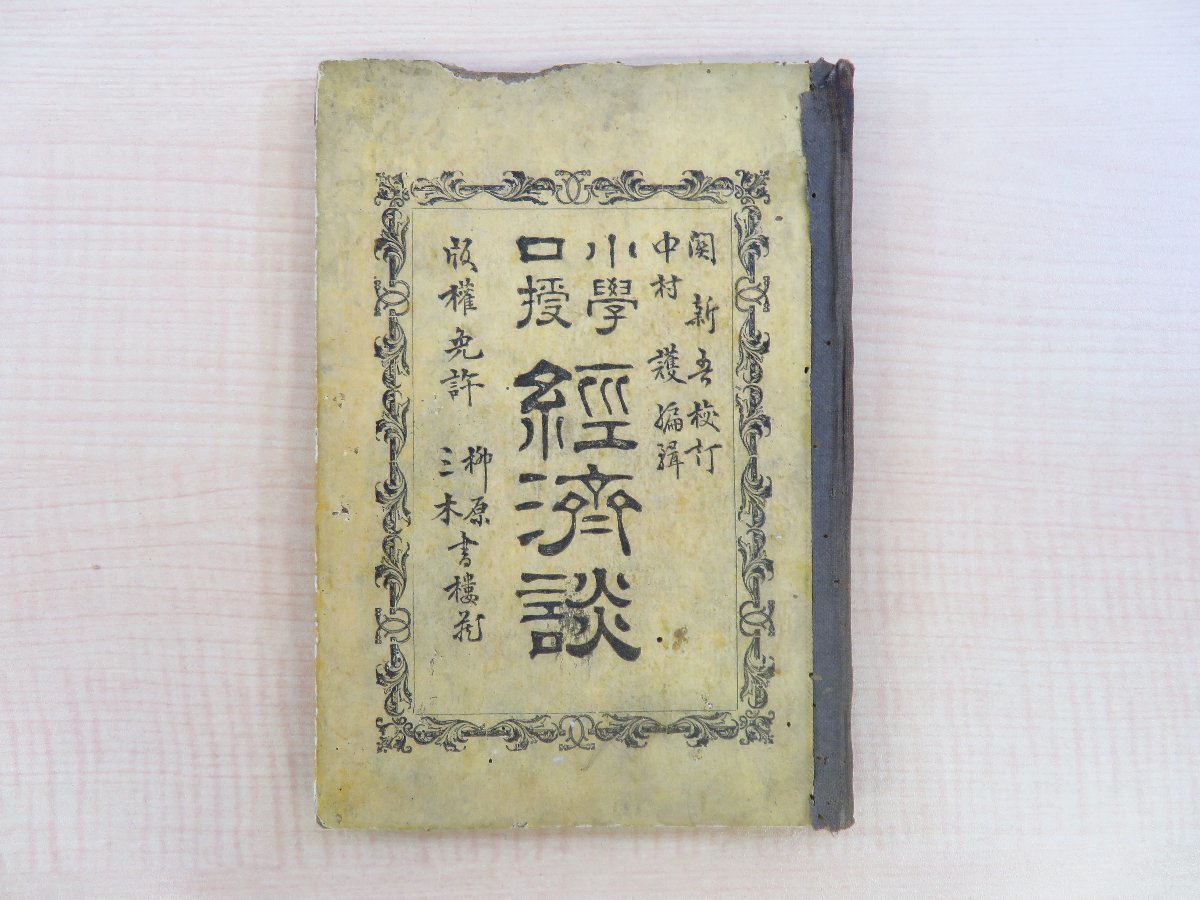 関新吾校訂
中村護編輯
小學
口授
經濟談
版權免許
柳原
三木
書樓藏